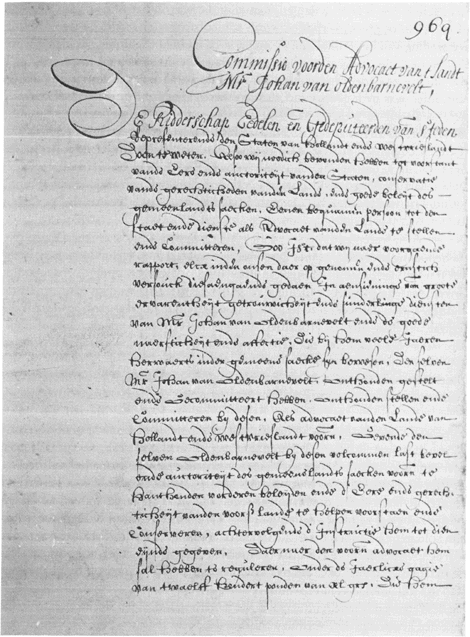 969.
Commissie voorden Advocaet van 't Landt
Mr. Johan van Oldenbarnevelt,
De Ridderschap Edelen en Gedeputeerden van Steden
Representerende den Staten van Hollandt ende Westvrieslandt
Doen te weten. Alsoo wij nodich bevonden hebben tot voorstant
vande Eere ende auctoriteyt vanden Staten, conservatie
vande gerechticheden vanden Lande, ende goede beleyt des
gemeenlandts saecken, Eenen bequamen persoon tot den
staet ende dienste als Advocaet vanden Lande te stellen
ende Committeren, Soo Ist, dat wij naer voorgaende
rapport, elcx in den onsen daer op genomen ende ernstich
versouck diesaengaende gedaen In aensieninge van groote
ervarentheyt getrouwicheyt ende sunderlinge diensten
van Mr. Johan van Oldenbarnevelt ende de goede
naersticheyt ende affectie, Die bij hem veele Jaeren
herwaerts inder gemeene saecke syn bewesen, Den selven
Mr. Johan van Oldenbarnevelt, Onthouden gestelt
ende Gecommitteert hebben, Onthouden stellen ende
Committeren by desen, Als advocaet vanden Lande van
Hollandt ende Westvrieslandt voorn, Gevende den
selven Oldenbarnevelt by desen volcommen last bevel
ende auctoriteyt des gemeenelandts saecken voorn te
handthouden vorderen beleyden ende d'Eere ende gerech-
ticheyt vanden voorss lande te helpen voorstaen ende
Conserveren, achtervolgende d'Instructie hem tot dien
eynde gegeven. Daer naer den voorn advocaet hem
sal hebben te reguleren, Onder de Jaerlicxe gagie
van twaelff hondert ponden van xl grs, Die hem